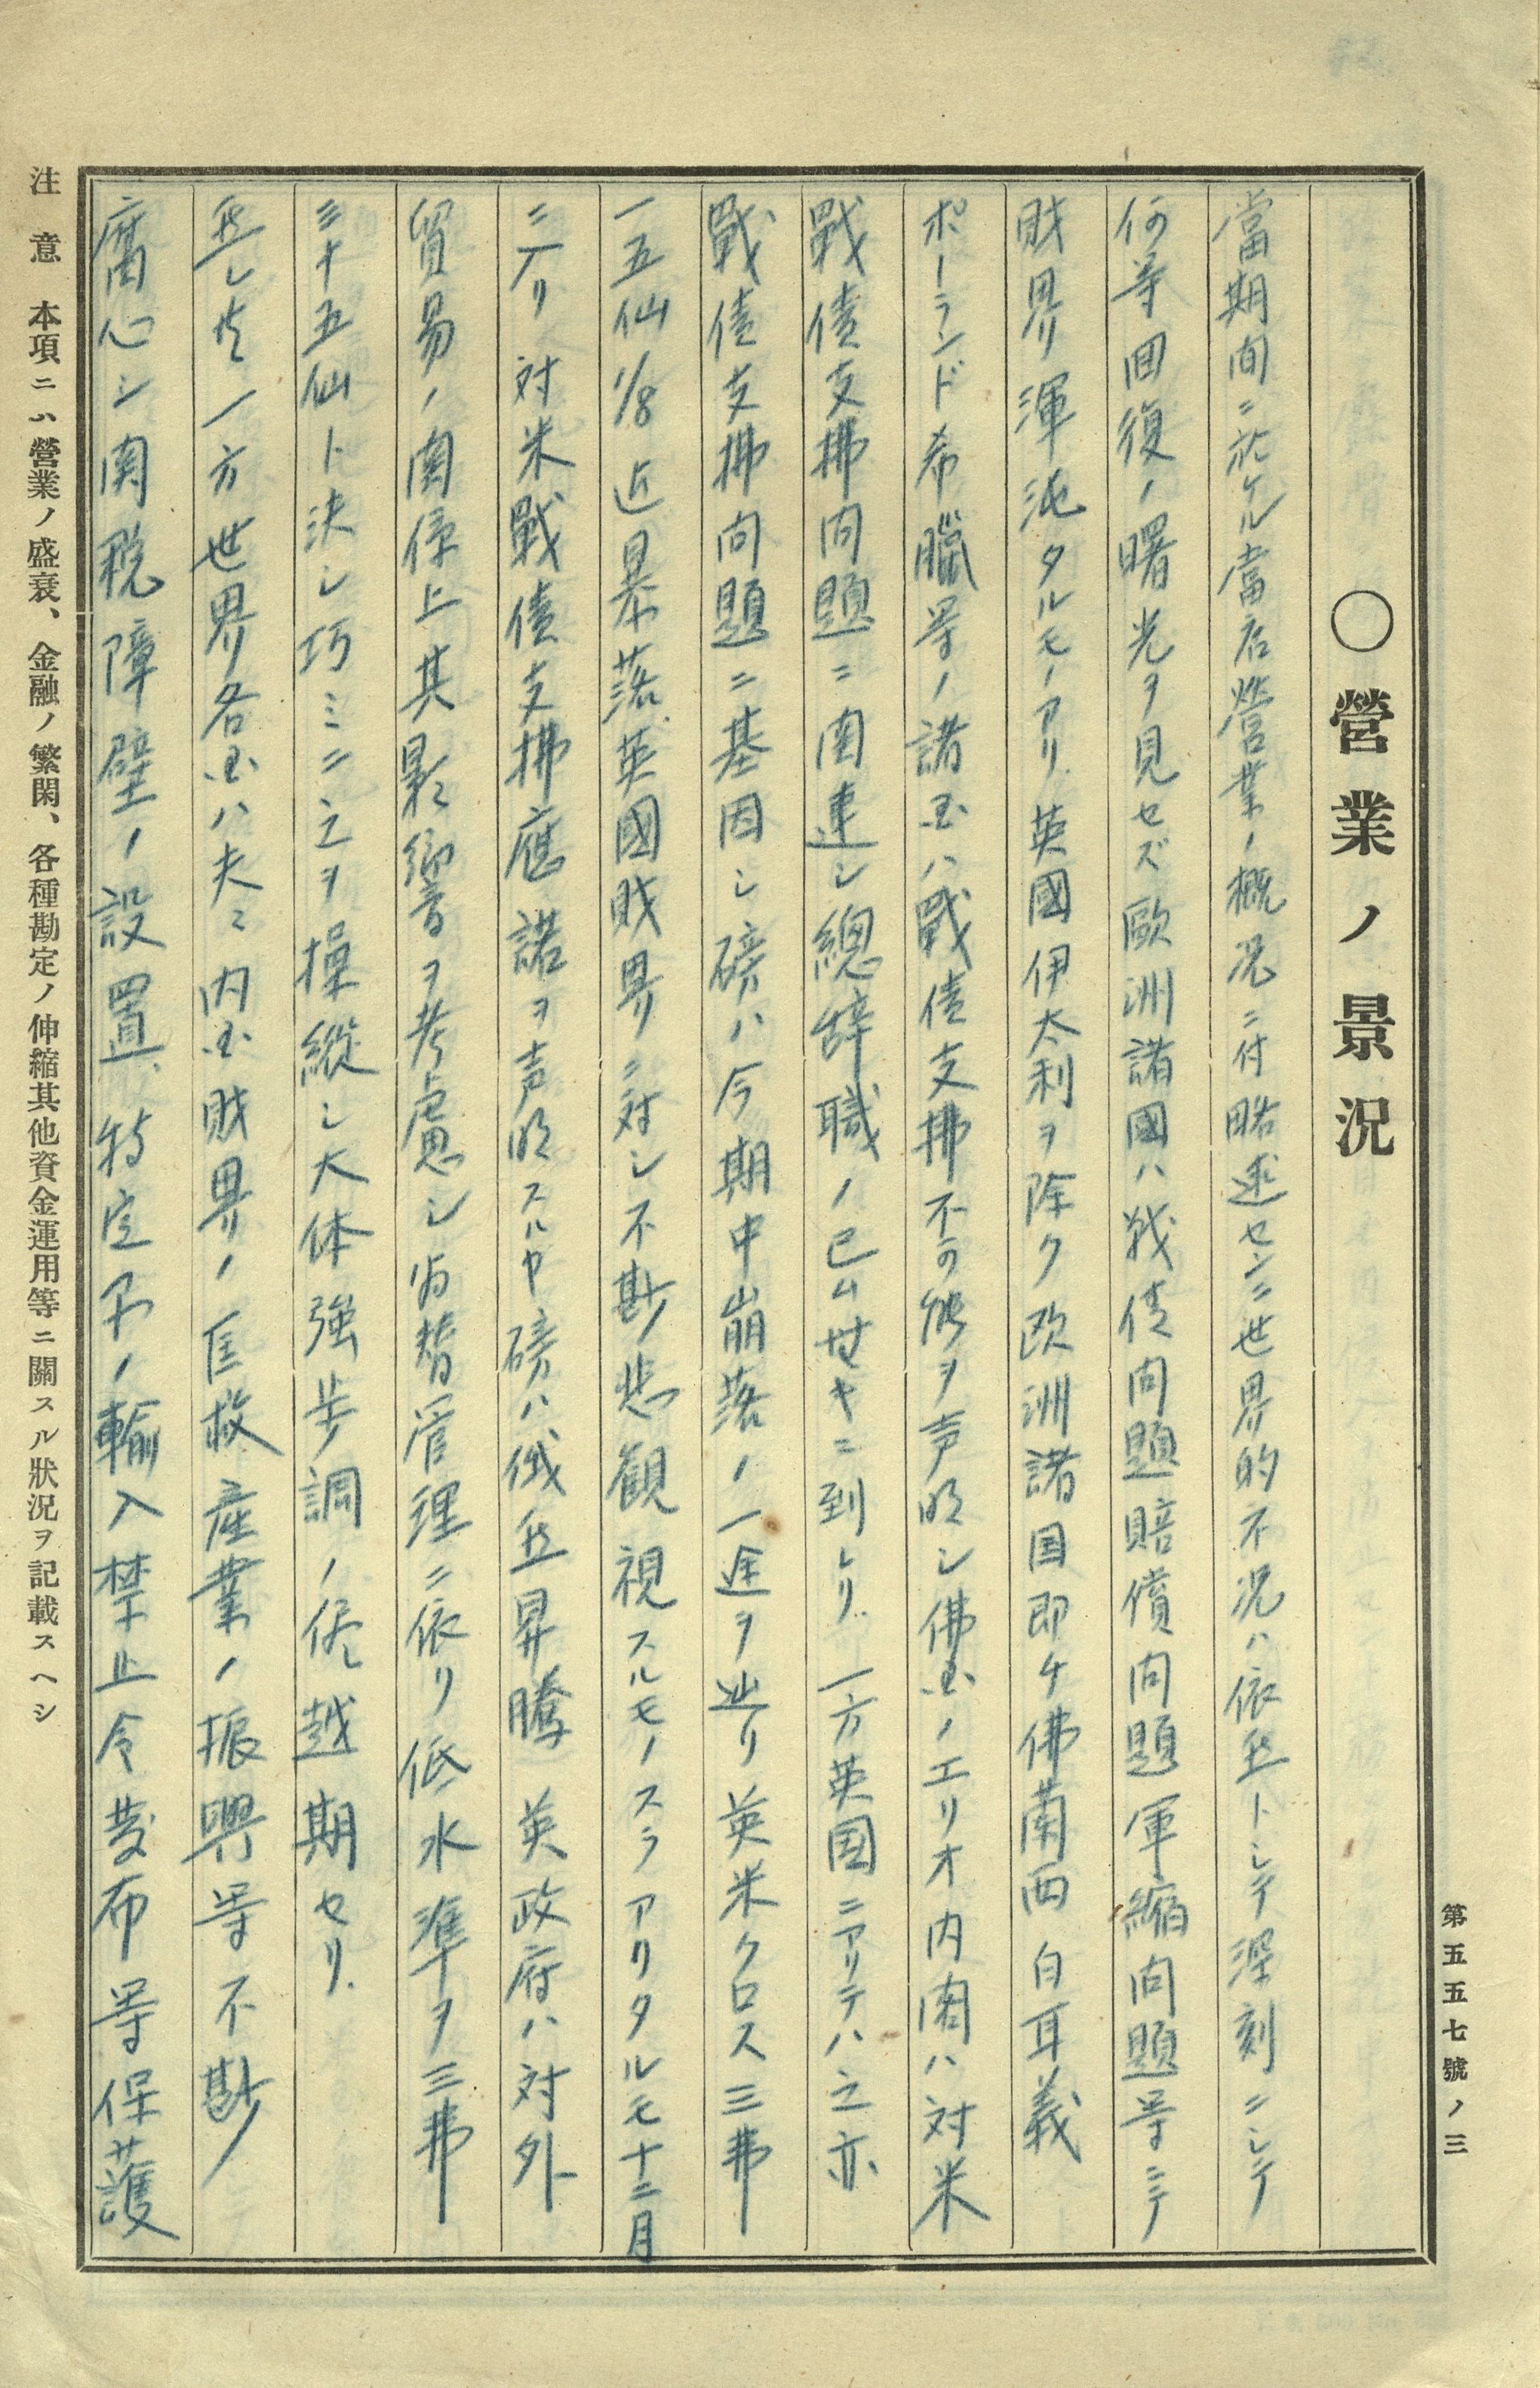 第五五七號ノ三
〇營業ノ景況
當期間ニ於ケル當店營業ノ概況ニ付略述センニ世界的不況ハ依然トシテ深刻ニシテ
何等回復ノ曙光ヲ見セズ歐洲諸國ハ戦債問題賠償問題軍縮問題等ニテ
財界渾沌タルモノアリ.英國伊太利ヲ除ク欧洲諸国即チ佛蘭西白耳義
ポーランド希臘等ノ諸国ハ戰債支拂不可能ヲ声明シ佛国ノエリオ内閣ハ対米
戰債支拂問題ニ関連シ總辞職ノ已ムナキニ到レリ.一方英国ニアリテハ之亦
戰債支拂問題ニ基因シ磅ハ今期中崩落ノ一途ヲ辿リ英米クロス三弗
一五仙1/8近暴落英國財界ニ対シ不尠悲観視スルモノスラアリタルモ十二月
ニ入リ対米戰債支拂應諾ヲ声明スルヤ磅ハ俄然昇騰英政府ハ対外
貿易ノ関係上其影響ヲ考慮シ為替管理ニ依リ低水準ヲ三弗
三十五仙ト決シ巧ミニ之ヲ操縦シ大体強歩調ノ侭越期セリ.
然レ共一方世界各国ハ夫々内国財界ノ匡救産業ノ振興等不尠
腐心シ関税障壁ノ設置、特定品ノ輸入禁止令発布等保護
注意 本項ニハ營業ノ盛衰、金融ノ繁閑、各種勘定ノ伸縮其他資金運用等ニ關スル狀況ヲ記載スヘシ